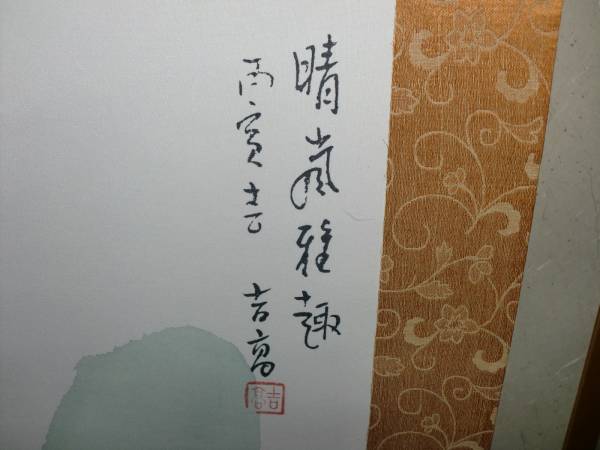 晴嵐雅趣
丙寅 吉高
吉高